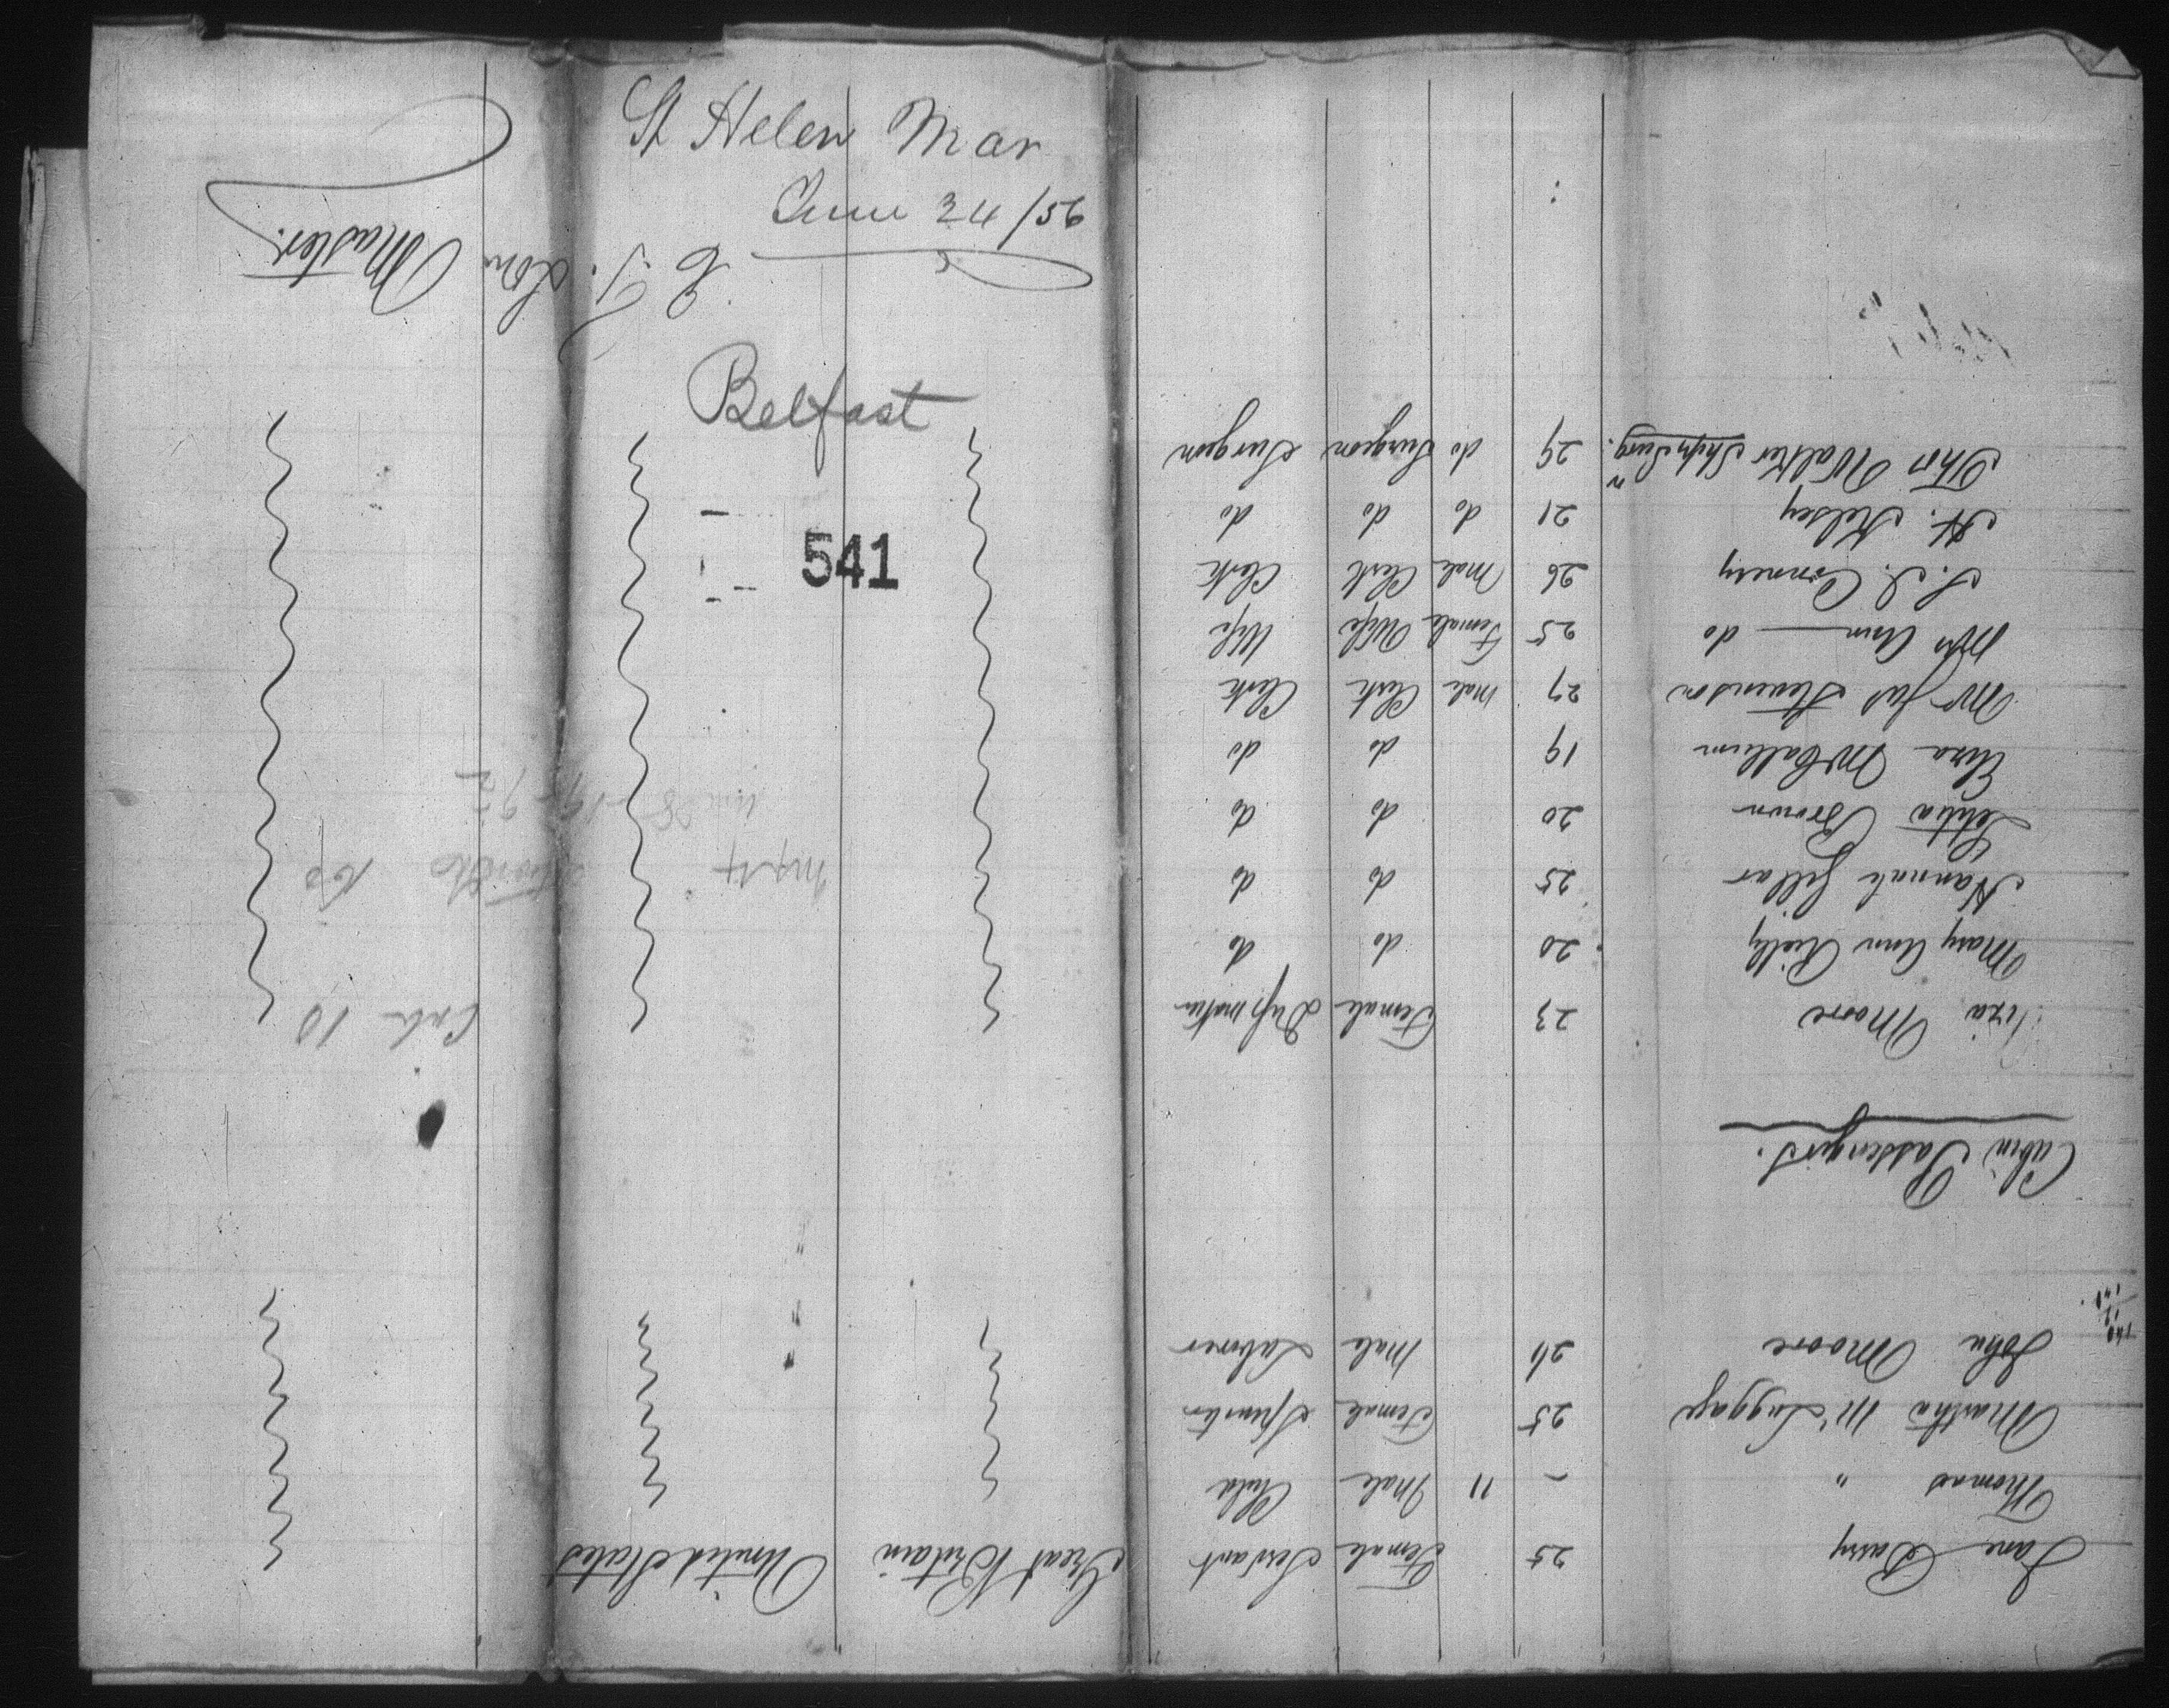 St Helen Mar
June 24/56
Belfast
541
Jane Barry 25 Female Servant Great Britain United States
Thomas " - 11 Male Child
Martha McLuggage 25 Female Spinster
John Moore 26 Male Laborer
140
141
Cabin Passengers.
Eliza Moore 23 Female Dressmaker
Mary Ann Rielly 20 do do
Hannah Gellar 25 do do
Letitia Brown 20 do do
Eliza McCallum 19 do do
Mr Jas Stevenson 27 Male Clerk Clerk
Mrs Ann — do 25 Female Wife Wife
Connery 26 Male Clerk Clerk
H. Kelsey 21 do do do
Thos Walker Ship Surgn. 29 do Surgeon Surgeon
Master.